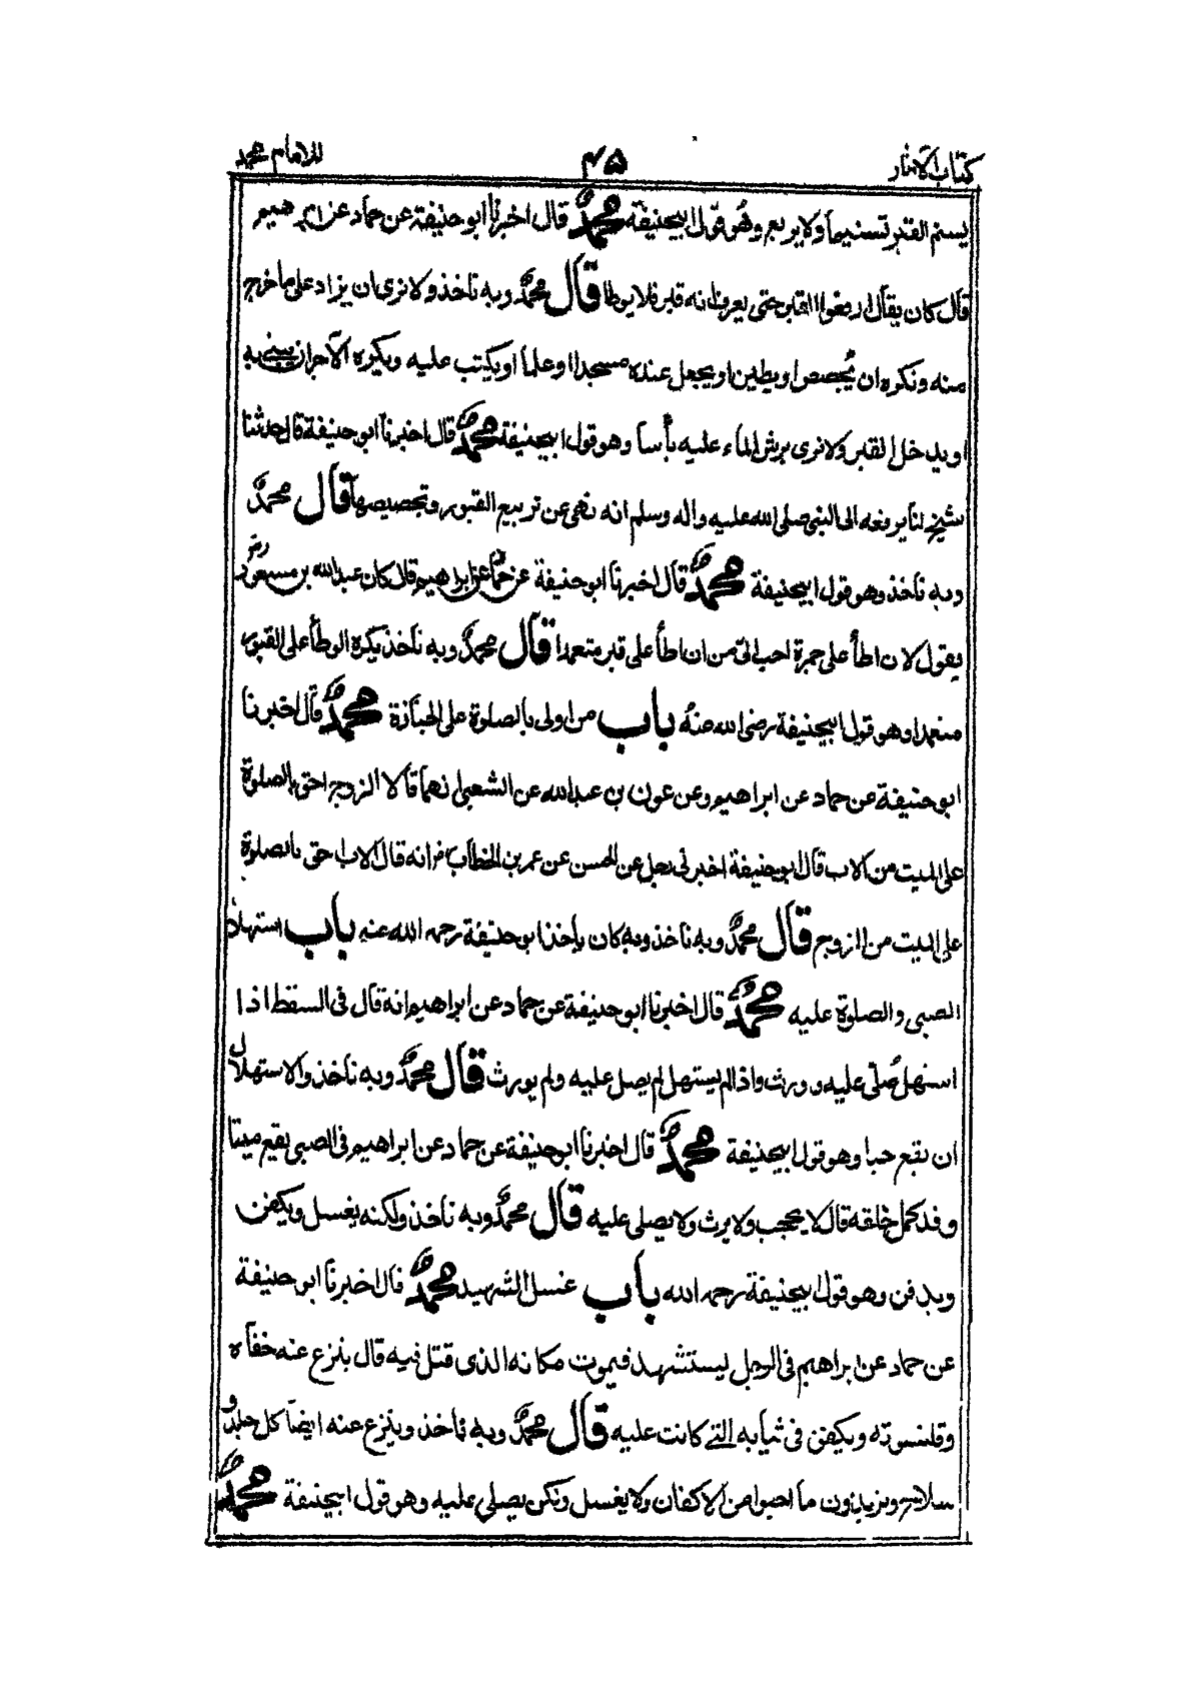 كتاب الآثار ٤٥ للامام محمد
يسنم القبر تسنيما ولا يربع وهو قول ابيحنيفة محمد قال اخبرنا ابو حنيفة عن حماد عن ابرهيم
قال كان يقال ارفعوا القبر حتى يعرف انه قبر فلا يوطا قال محمد وبه ناخذ ولا نرى ان يزاد على ما خرج
منه ونكره ان يجصص او يطين او يجعل عنده مسجدا او علما او يكتب عليه ويكره الآجر ان يبنى به
او يدخل القبر ولا نرى برش الماء عليه بأسا وهو قول ابيحنيفة محمد قال اخبرنا ابو حنيفة قال حدثنا
شيخ لنا يرفعه الى النبى صلى الله عليه واله وسلم انه نهى عن تربيع القبور وتجصيصها قال محمد
وبه ناخذ وهو قول ابيحنيفة محمد قال اخبرنا ابو حنيفة عن حماد عن ابراهيم قال كان عبد الله بن مسعود رض
يقول لان اطأ على جمرة احب الىّ من ان اطأ على قبر متعمدا قال محمد وبه ناخذ يكره الوطأ على القبور
متعمدا وهو قول ابيحنيفة رضى الله عنه باب من اولى بالصلوة على الجنازة محمد قال اخبرنا
ابو حنيفة عن حماد عن ابراهيم وعن عون بن عبد الله عن الشعبى انهما قالا الزوج احق بالصلوة
على الميت من الاب قال ابو حنيفة اخبرنى رجل عن الحسن عن عمر بن الخطاب انه قال الاب احق بالصلوة
على الميت من الزوج قال محمد وبه ناخذ وبه كان ياخذ ابو حنيفة رحمه الله عنه باب استهلال
الصبى والصلوة عليه محمد قال اخبرنا ابو حنيفة عن حماد عن ابراهيم انه قال فى السقط اذا
استهل صُلّى عليه وورث واذا لم يستهل لم يصل عليه ولم يورث قال محمد وبه ناخذ والاستهلال
ان يقع حيا وهو قول ابيحنيفة محمد قال اخبرنا ابو حنيفة عن حماد عن ابراهيم فى الصبى يقع ميتا
وقد كمل خلقه قال لا يحجب ولا يرث ولا يصلى عليه قال محمد وبه ناخذ ولكنه يغسل ويكفن
ويدفن وهو قول ابيحنيفة رحمه الله باب غسل الشهيد محمد قال اخبرنا ابو حنيفة
عن حماد عن ابراهيم فى الرجل يستشهد فيموت مكانه الذى قتل فيه قال ينزع عنه خفاه
وقلنسوته ويكفن فى ثيابه التى كانت عليه قال محمد وبه ناخذ وينزع عنه ايضا كل جلد و
سلاح ويزيدون ما احبوا من الاكفان ولا يغسل ولكن يصلى عليه وهو قول ابيحنيفة محمد